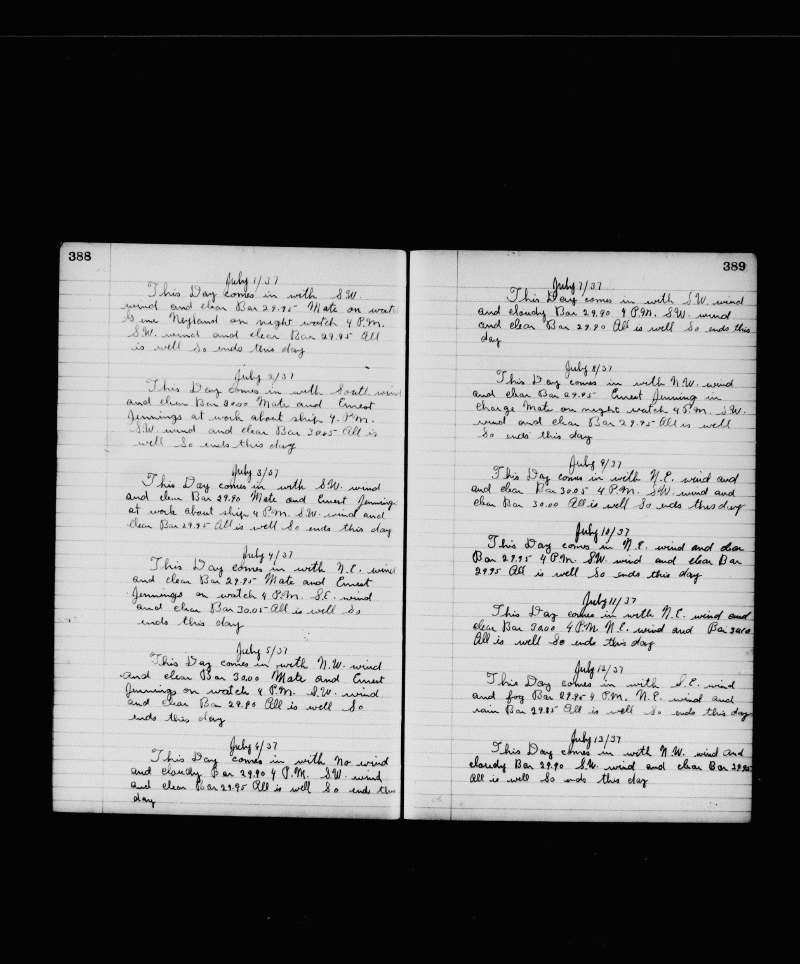 388
July 1/37
This Day comes in with S.W.
wind and clear Bar 29.95 Mate on watch
on night watch 4 P.M.
S.W. wind and clear Bar 29.95 All
is well So ends this day
July 2/37
This Day comes in with South wind
and clear Bar 30.00 Mate and Ernest
Jennings at work about ship 4. P.M.
S.W. wind and clear Bar 30.05 All is
well So ends this day
July 3/37
This Day comes in with S.W. wind
and clear Bar 29.90 Mate and Ernest Jennings
at work about ship 4 P.M. S.W. wind and
clear Bar 29.95 All is well So ends this day
July 4/37
This Day comes in with N.E. wind
and clear Bar 29.95 Mate and Ernest
Jennings on watch 4 P.M. S.E. wind
and clear Bar 30.05 All is well So
ends this day
July 5/37
This Day comes in with N.W. wind
and clear Bar 30.00 Mate and Ernest
Jennings on watch 4 P.M. S.W. wind
and clear Bar 29.90 All is well So
ends this day
July 6/37
This Day comes in with No wind
and cloudy Bar 29.90 4 P.M. S.W. wind
and clear Bar 29.95 All is well So ends this
day
389
July 7/37
This Day comes in with S.W. wind
and cloudy Bar 29.90 4 P.M. S.W. wind
and clear Bar 29.90 All is well So ends this
day
July 8/37
This Day comes in with N.W. wind
and clear Bar 29.95 Ernest Jenning in
charge Mate on night watch 4 P.M. S.W.
wind and clear Bar 29.95 All is well
So ends this day
July 9/37
This Day comes in with N.E. wind and
and clear Bar 30.05 4 P.M. S.W. wind and
clear Bar 30.00 All is well So ends this day
July 10/37
This Day comes in N.E. wind and clear
Bar 29.95 4 P.M. S.W. wind and clear Bar
29.95 All is well So ends this day
July 11/37
This Day comes in with N.E. wind and
clear Bar 30.00 4 P.M. N.E. wind and Bar 30.00
All is well So ends this day
July 12/37
This Day comes in with S.E. wind
and fog Bar 29.95 4 P.M. N.E. wind and
rain Bar 29.85 All is well So ends this day
July 13/37
This Day comes in with N.W. wind and
cloudy Bar 29.90 S.W. wind and clear Bar 29.95
All is well So ends this day